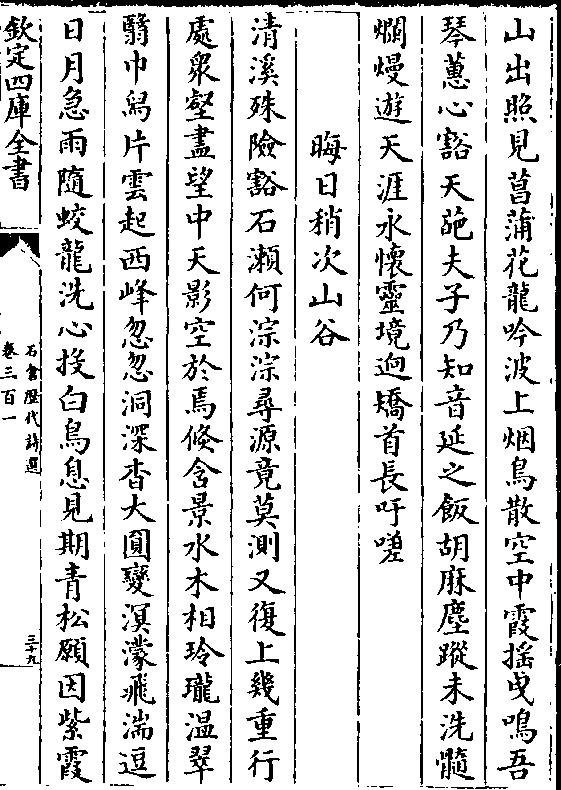 山出照見菖蒲花龍吟波上烟鳥散空中霞揺曵鳴吾
琴蕙心豁天葩夫子乃知音延之飯胡麻塵蹤未洗髓
爛熳遊天涯永懷靈境迥矯首長吁嗟
晦日稍次山谷
清溪殊險豁石瀬何淙淙尋源竟莫測又復上幾重行
處衆壑盡望中天影空於焉倐含景水木相玲瓏温翠
翳巾舄片雲起西峰忽忽洞深杳大圓變溟濛飛湍逗
日月急雨隨蛟龍洗心投白鳥息見期青松願因紫霞
欽定四庫全書
石倉歴代詩選
卷三百一
三十九